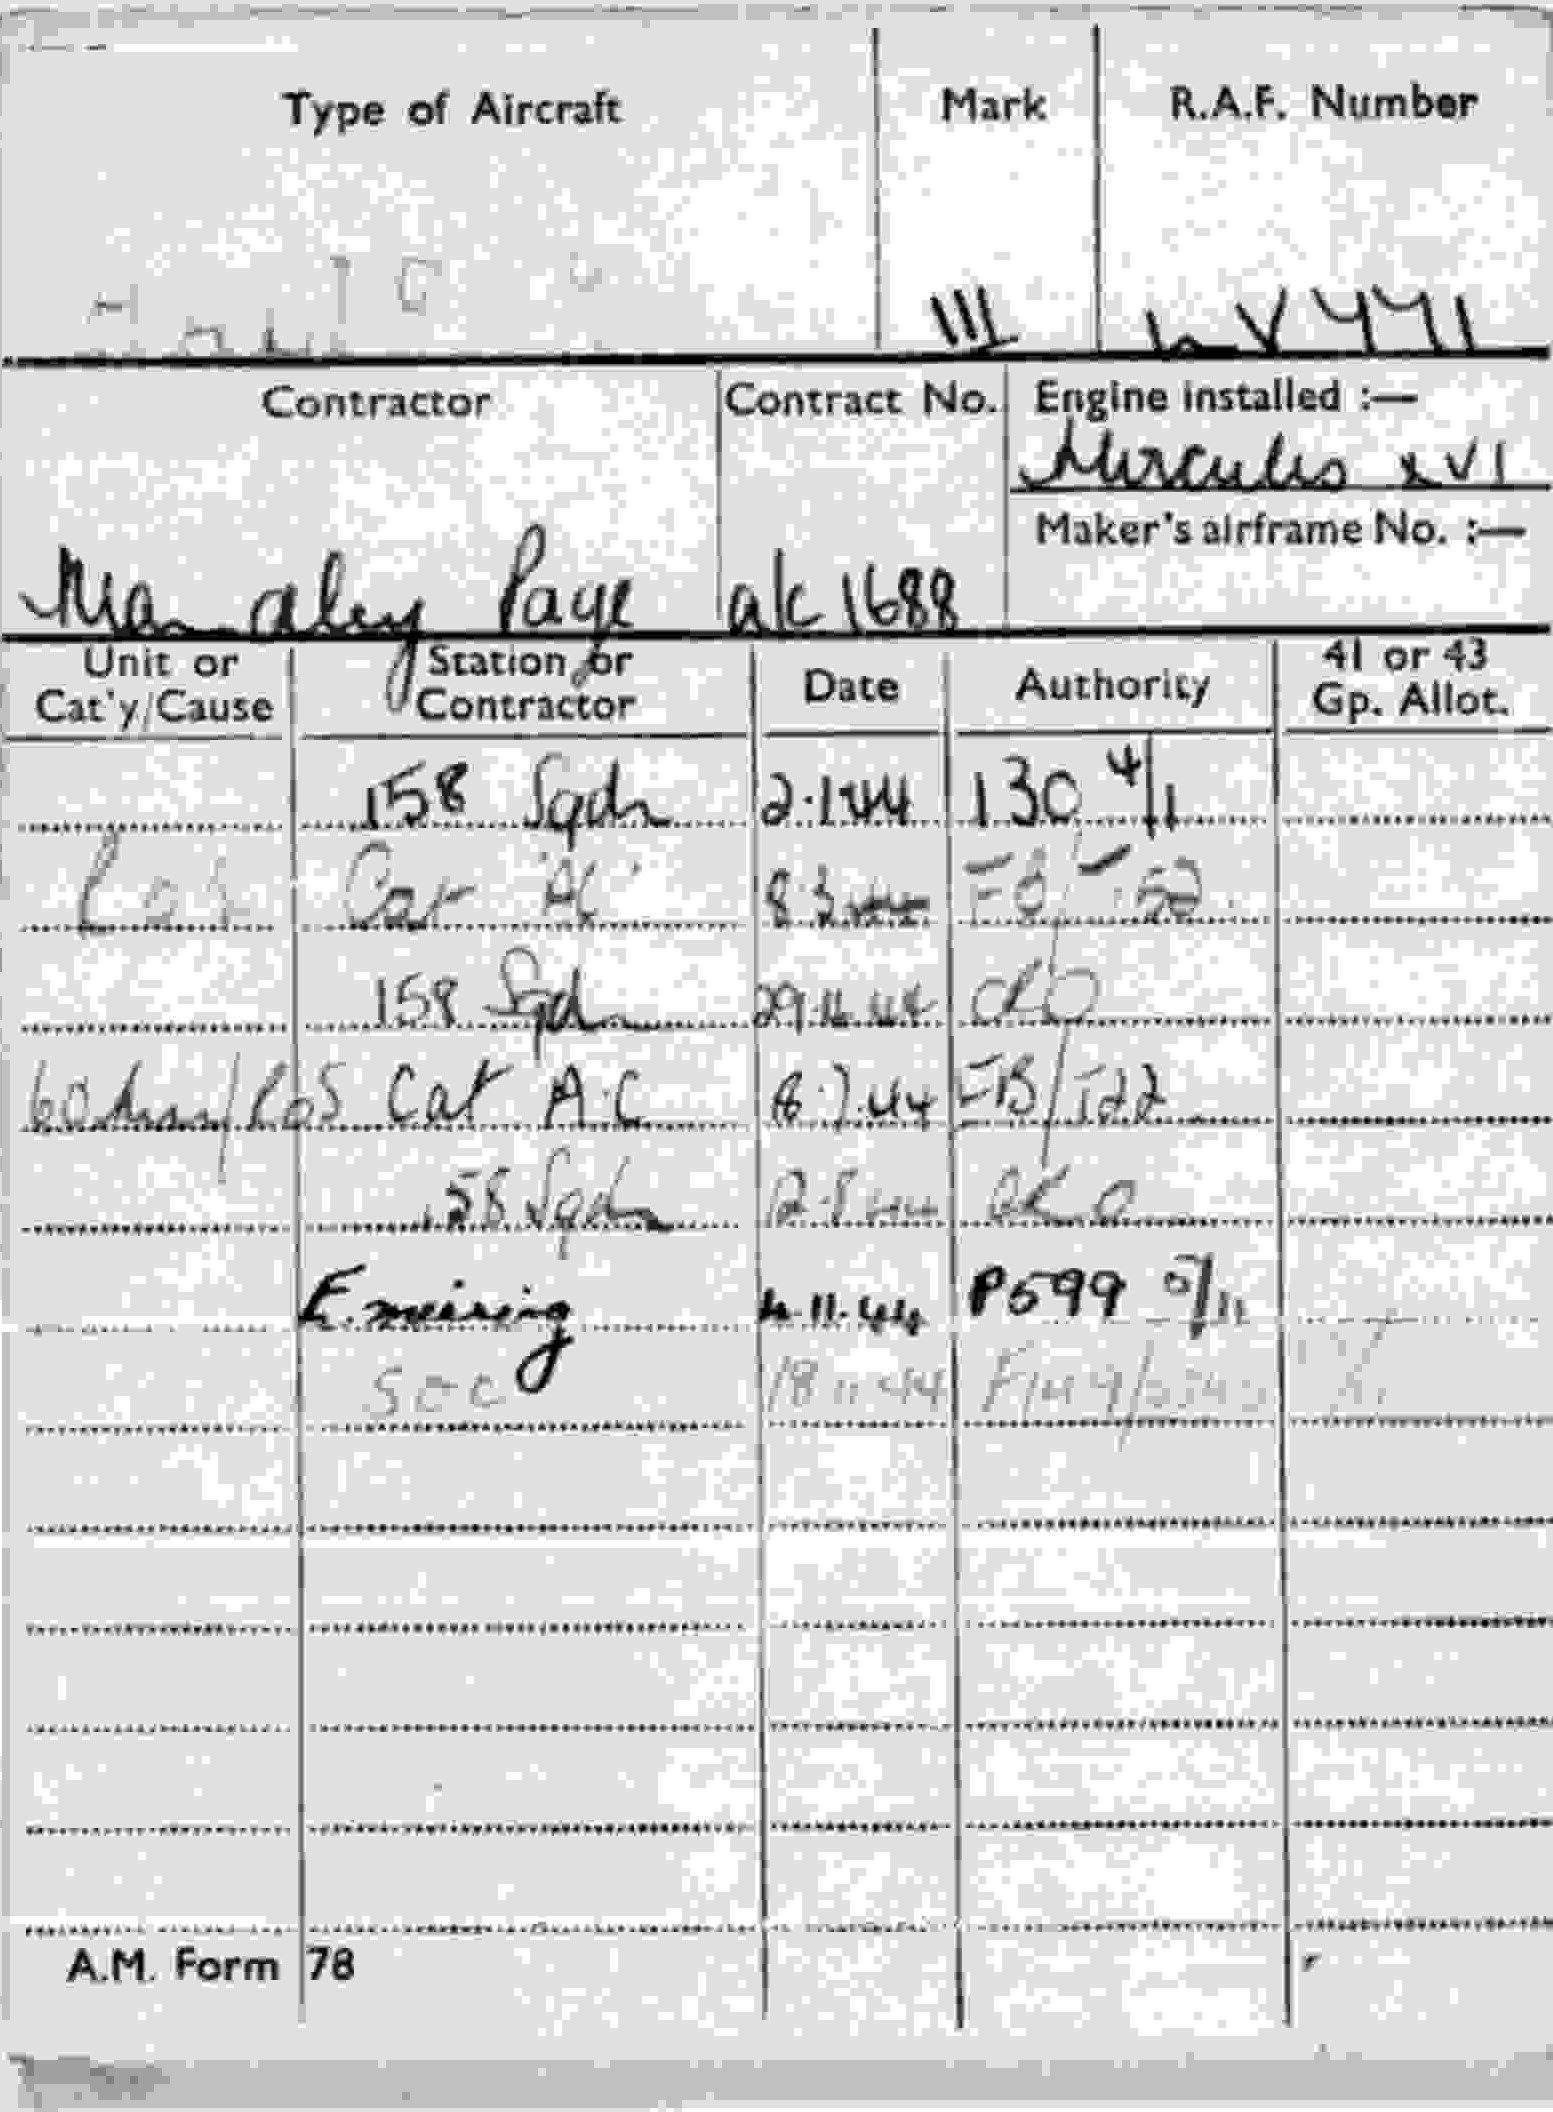 Type of Aircraft Mark R.A.F. Number
III LV771
Contractor Contract No. Engine installed :—
Hercules XVI
Maker's airframe No. :—
Handley Page a/c 1688
Unit or Cat'y/Cause Station or Contractor Date Authority 41 or 43 Gp. Allot.
158 Sqdn 2.1.44 130 4/1
Ros Cat AC 8.3.44
158 Sqdn 44 ORO
60 hrs/RoS Cat A.C 8.7.44 FB/T22
158 Sqdn 12.8.44
F.B. missing 4.11.44 P599 5/11
SOC 18 11 44
A.M. Form 78